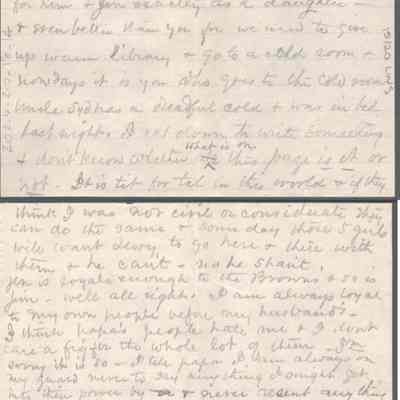 for him & Jen exactly as a daughter —
& even better than you for we used to give
up warm library & go to a cold room &
nowadays it is you who goes to the cold room
Uncle Syd has a dreadful cold & was in bed
last night. I sat down to write something
what is on
& dont know whether this page is it or
not. It is tit for tat in this world & if they
think I was not civil or considerate they
can do the same & some day those 5 girls
will want Dewy to go here & there with
them & he can't - nr he shan't.
Jen is loyal enough to the Browns & so is
Jim - well all right. I am always loyal
to my own people before my husband's -
I think papa's people hate me & I dont
care a fig for the whole lot of them - I'm
sorry it is so - I tell papa I am always on
my guard never to say anything I might get
into their power by & never resent anything